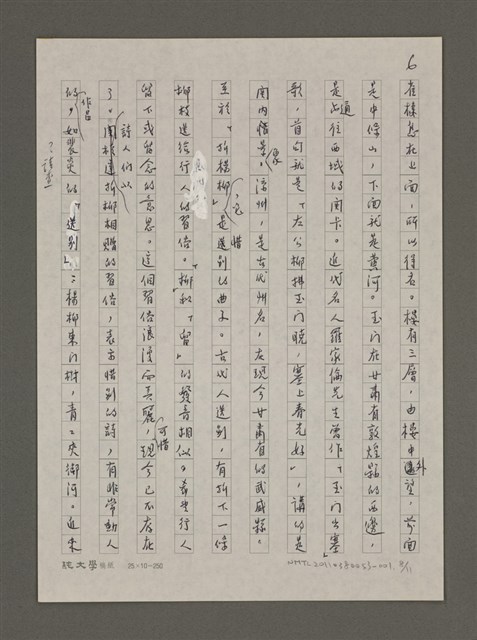 6
雀棲息在上面，所以得名。樓有三層，由樓中外望，前面
是中條山，下面就是黃河。玉門在甘肅省敦煌縣的西邊，
是通往西域的關卡。近代名人羅家倫先生曾作「玉門出塞」
歌，首句就是「左公柳拂玉門曉，塞上春光好」，講的是
關內情景。涼州，是古代州名，在現今甘肅省的武威縣。
至於「折楊柳」，它是惜別的曲子。古代人送別，有折下一條
柳枝送給行人的習俗。「柳」和「留」的發音相似。希望行人
留下或留念的意思。這個習俗浪漫而美麗，可惜現今已不存在
了。詩人們以折柳相贈的習俗，表方惜別的詩，有非常動人
的作品，如裴炎的「送別」：楊柳東門樹，青二夾御河。近來
文學稿紙 25×10=250
NMTL20110580053-001 8/11